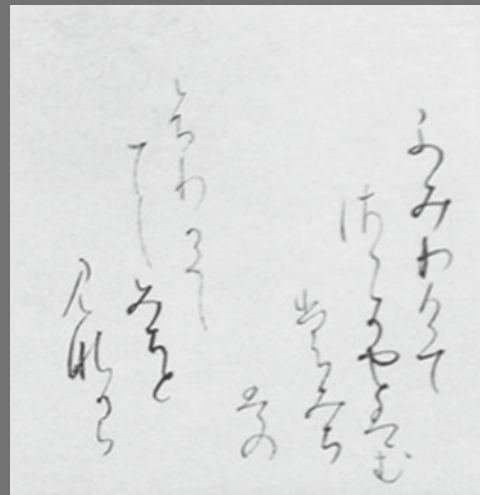 ふみわけて
さらにやとはむ
もみち
はの
ふりかくし
てしみちと
見なから